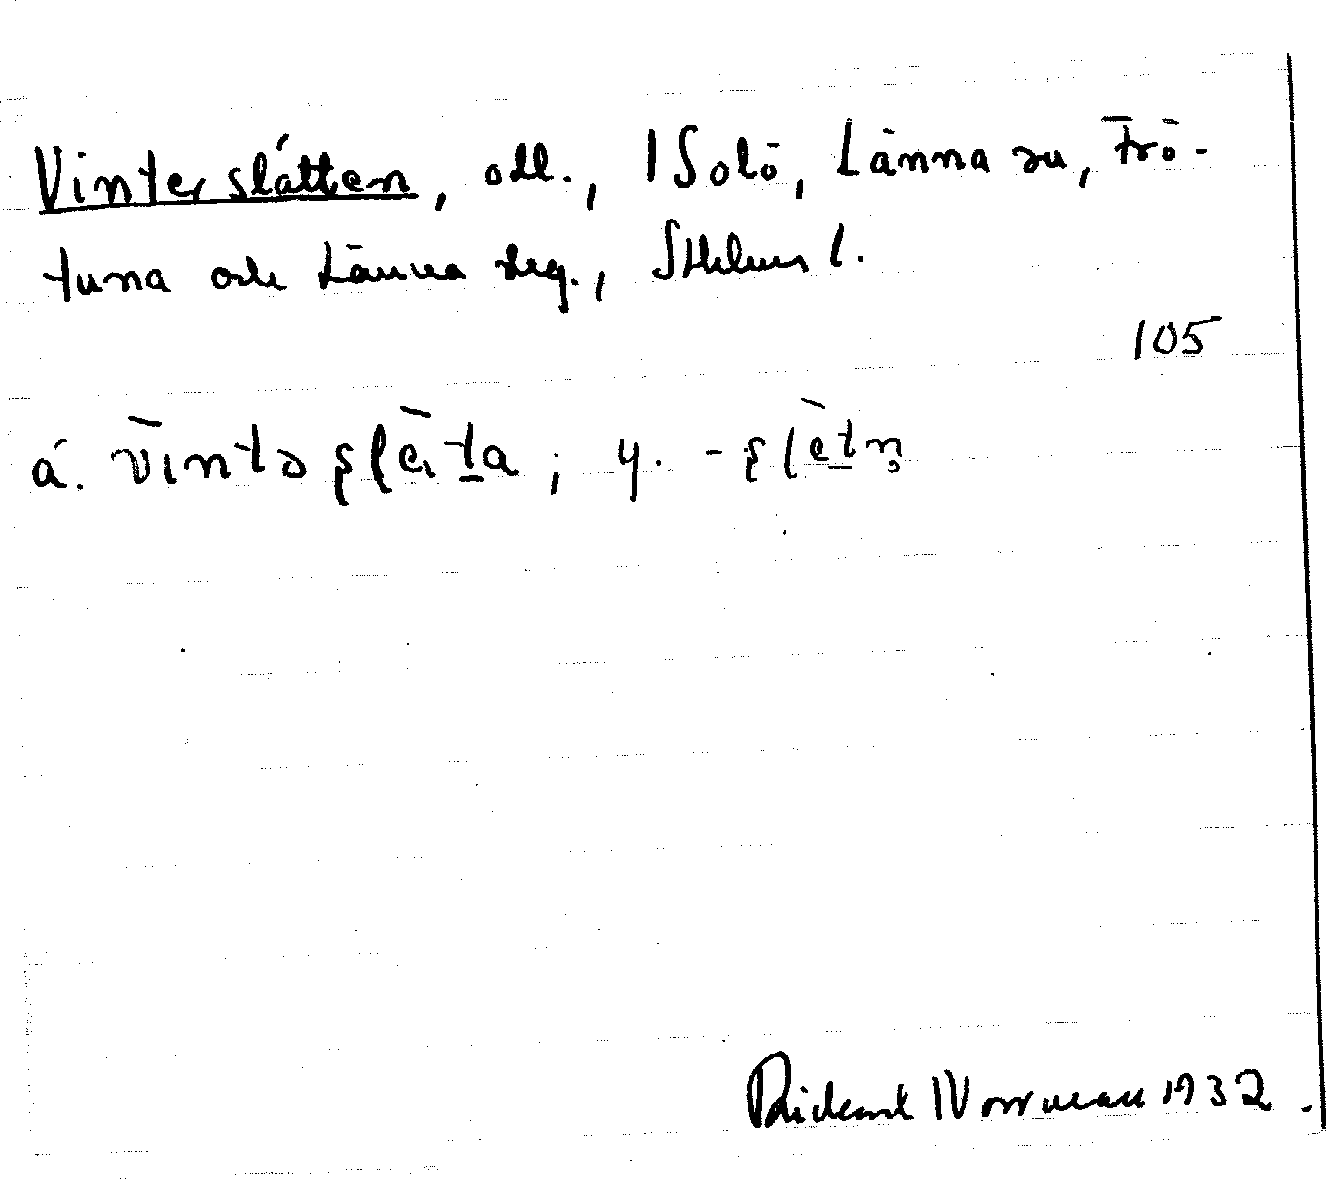 Vinterslåtten, odl., Isolö, Länna sn, Frö-
tuna och Länna skg., Sthlms l.
105
ä. vintəʂlèta; y. -ʂlètn̥
Rickard Norrman 1932.